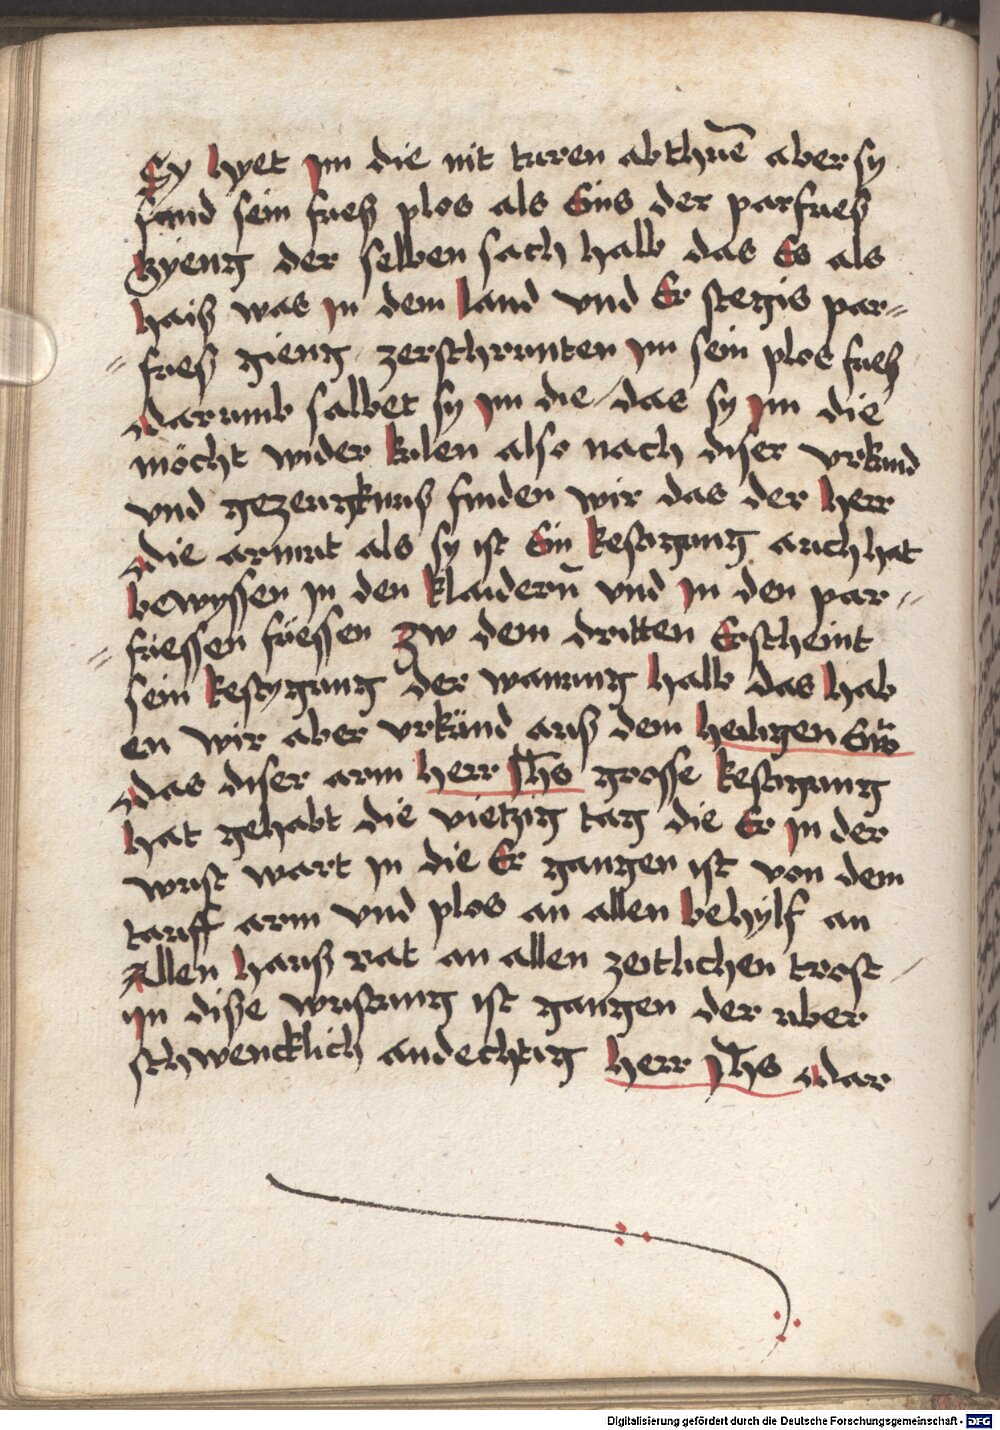 Sy hyet im die nit turen abthuē aber sy
fand sein fueß plos als Eins der parfueß
gyeng der selben sach halb das Es als
haiß was in dem land vnd Er stegis par=
= fueß gieng zerschrunten im sein plos fueß
darumb salbet sy im die / das sy im die
möcht wider kulen also nach diser vrkund
vnd gezeugknuß finden wir das der herr
die armut als sy ist Ein kestigung auch hat
bewyssen in den klaidern̄ vnd in den par=
= füessen füessen zw dem dritten Erscheint
sein kestygung der wanung halb das hab
en wir aber vrkünd auß dem heiligen Ew̄
das diser arm herr Jhs grosse kestigung
hat gehabt die vietzig tag die Er in der
wust wart in die Er gangen ist von dem
tauff arm vnd plos an allen behylf an
Allen hauß rat an allen zeitlichen trost /
in diße wustung ist gangen der uber
schwencklich andechtig herr Jhs dar
Digitalisierung gefördert durch die Deutsche Forschungsgemeinschaft - DFG